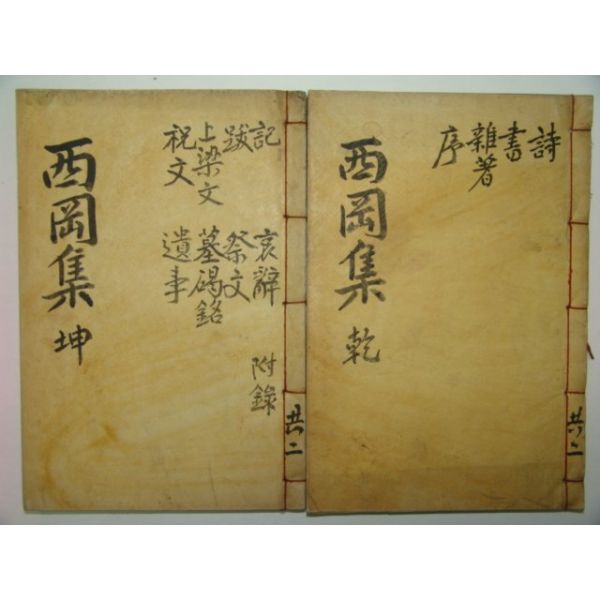 詩
書
雜著
序
西岡集 乾
共二
記
跋
上梁文
祝文
哀辭
祭文
墓碣銘
遺事
附錄
西岡集 坤
共二